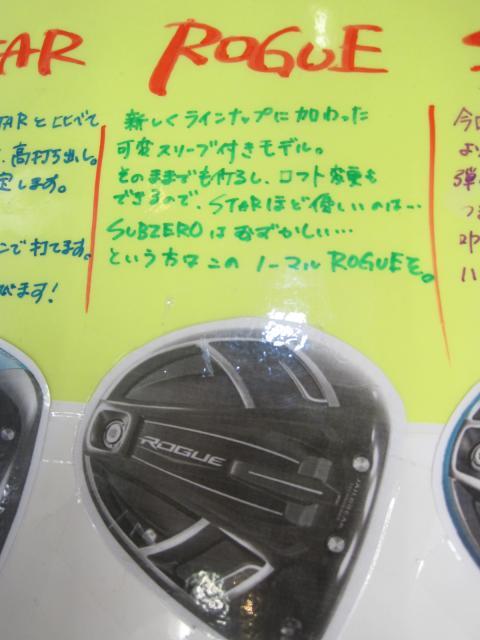 TAR
ROGUE
TARと比べて
、高打ち出し。
定します。
ンで打てます。
びます!
新しくラインナップに加わった
可変スリーブ付きモデル。
そのままでも打るし、ロフト変更も
できるので、STARほど優しいのは…
SUBZEROはむずかしい…
という方はこのノーマルROGUEを。
今
よ
弾
つ
叩
い
ROGUE
JAILBREAK